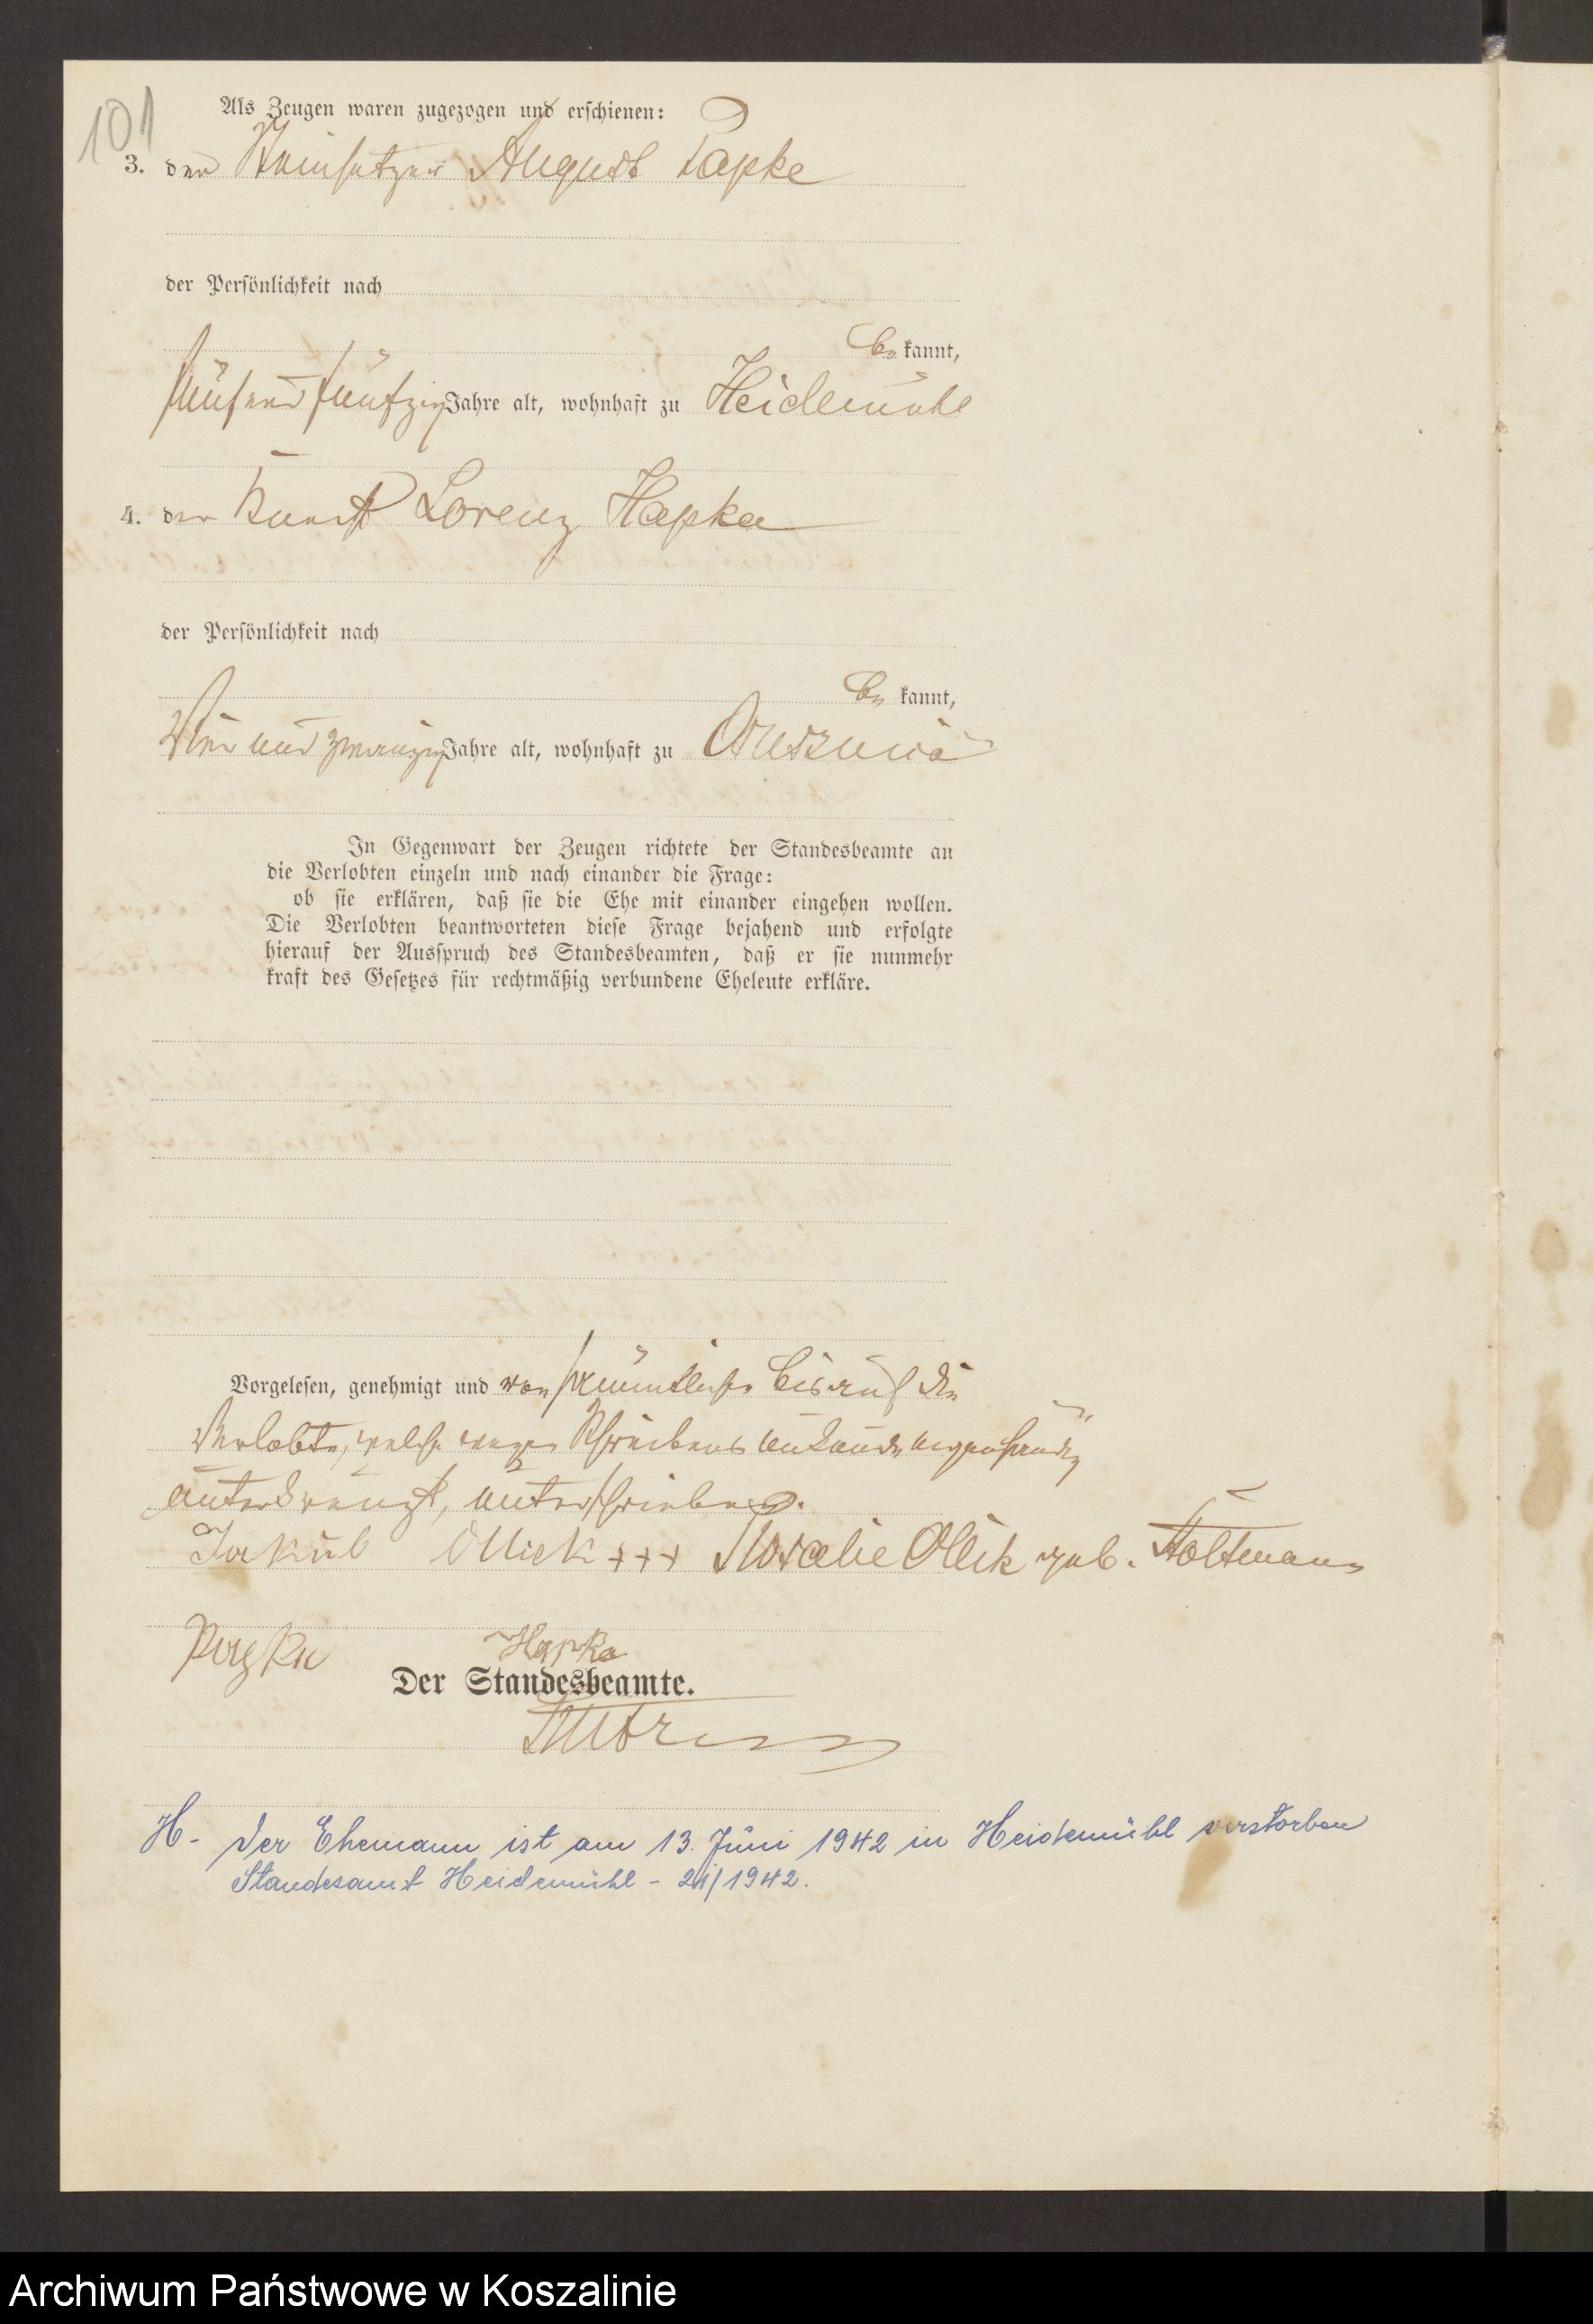 101
Als Zeugen waren zugezogen und erschienen:
3. der Steinsetzer August Papke
der Persönlichkeit nach
be kannt,
fünf und fünfzig Jahre alt, wohnhaft zu Heidemühl
4. der Lorenz Hapka
der Persönlichkeit nach
be kannt,
vier und zwanzig Jahre alt, wohnhaft zu
In Gegenwart der Zeugen richtete der Standesbeamte an
die Verlobten einzeln und nach einander die Frage:
ob sie erklären, daß sie die Ehe mit einander eingehen wollen.
Die Verlobten beantworteten diese Frage bejahend und erfolgte
hierauf der Ausspruch des Standesbeamten, daß er sie nunmehr
kraft des Gesetzes für rechtmäßig verbundene Eheleute erkläre.
Vorgelesen, genehmigt und von sämmtlichen bis auf die
Verlobte, welche wegen Schreibens unkunde eigenhändig
unterkreuzt, unterschrieben.
Jakub Ollick +++ Rosalie Ollik geb. Stoltmann
Papke Hapka
Der Standesbeamte.
H- Der Ehemann ist am 13. Juni 1942 in Heidemühl verstorben
Standesamt Heidemühl - /1942.